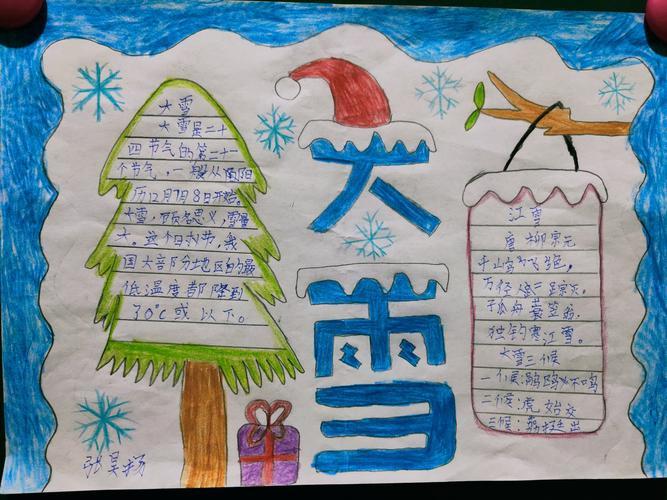 大雪
大雪是二十
四节气的第二十一
个节气,一般从阳
历12月7、8日开始。
大雪,顾名思义,雪量
大。这个时节,我
国大部分地区的最
低温度都降到
了0℃或以下。
大雪
江雪
唐 柳宗元
千山鸟飞绝,
万径人踪灭。
孤舟蓑笠翁,
独钓寒江雪。
大雪三候
一候:鹖鸣不鸣
二候:虎始交
三候:荔挺出
张昊扬